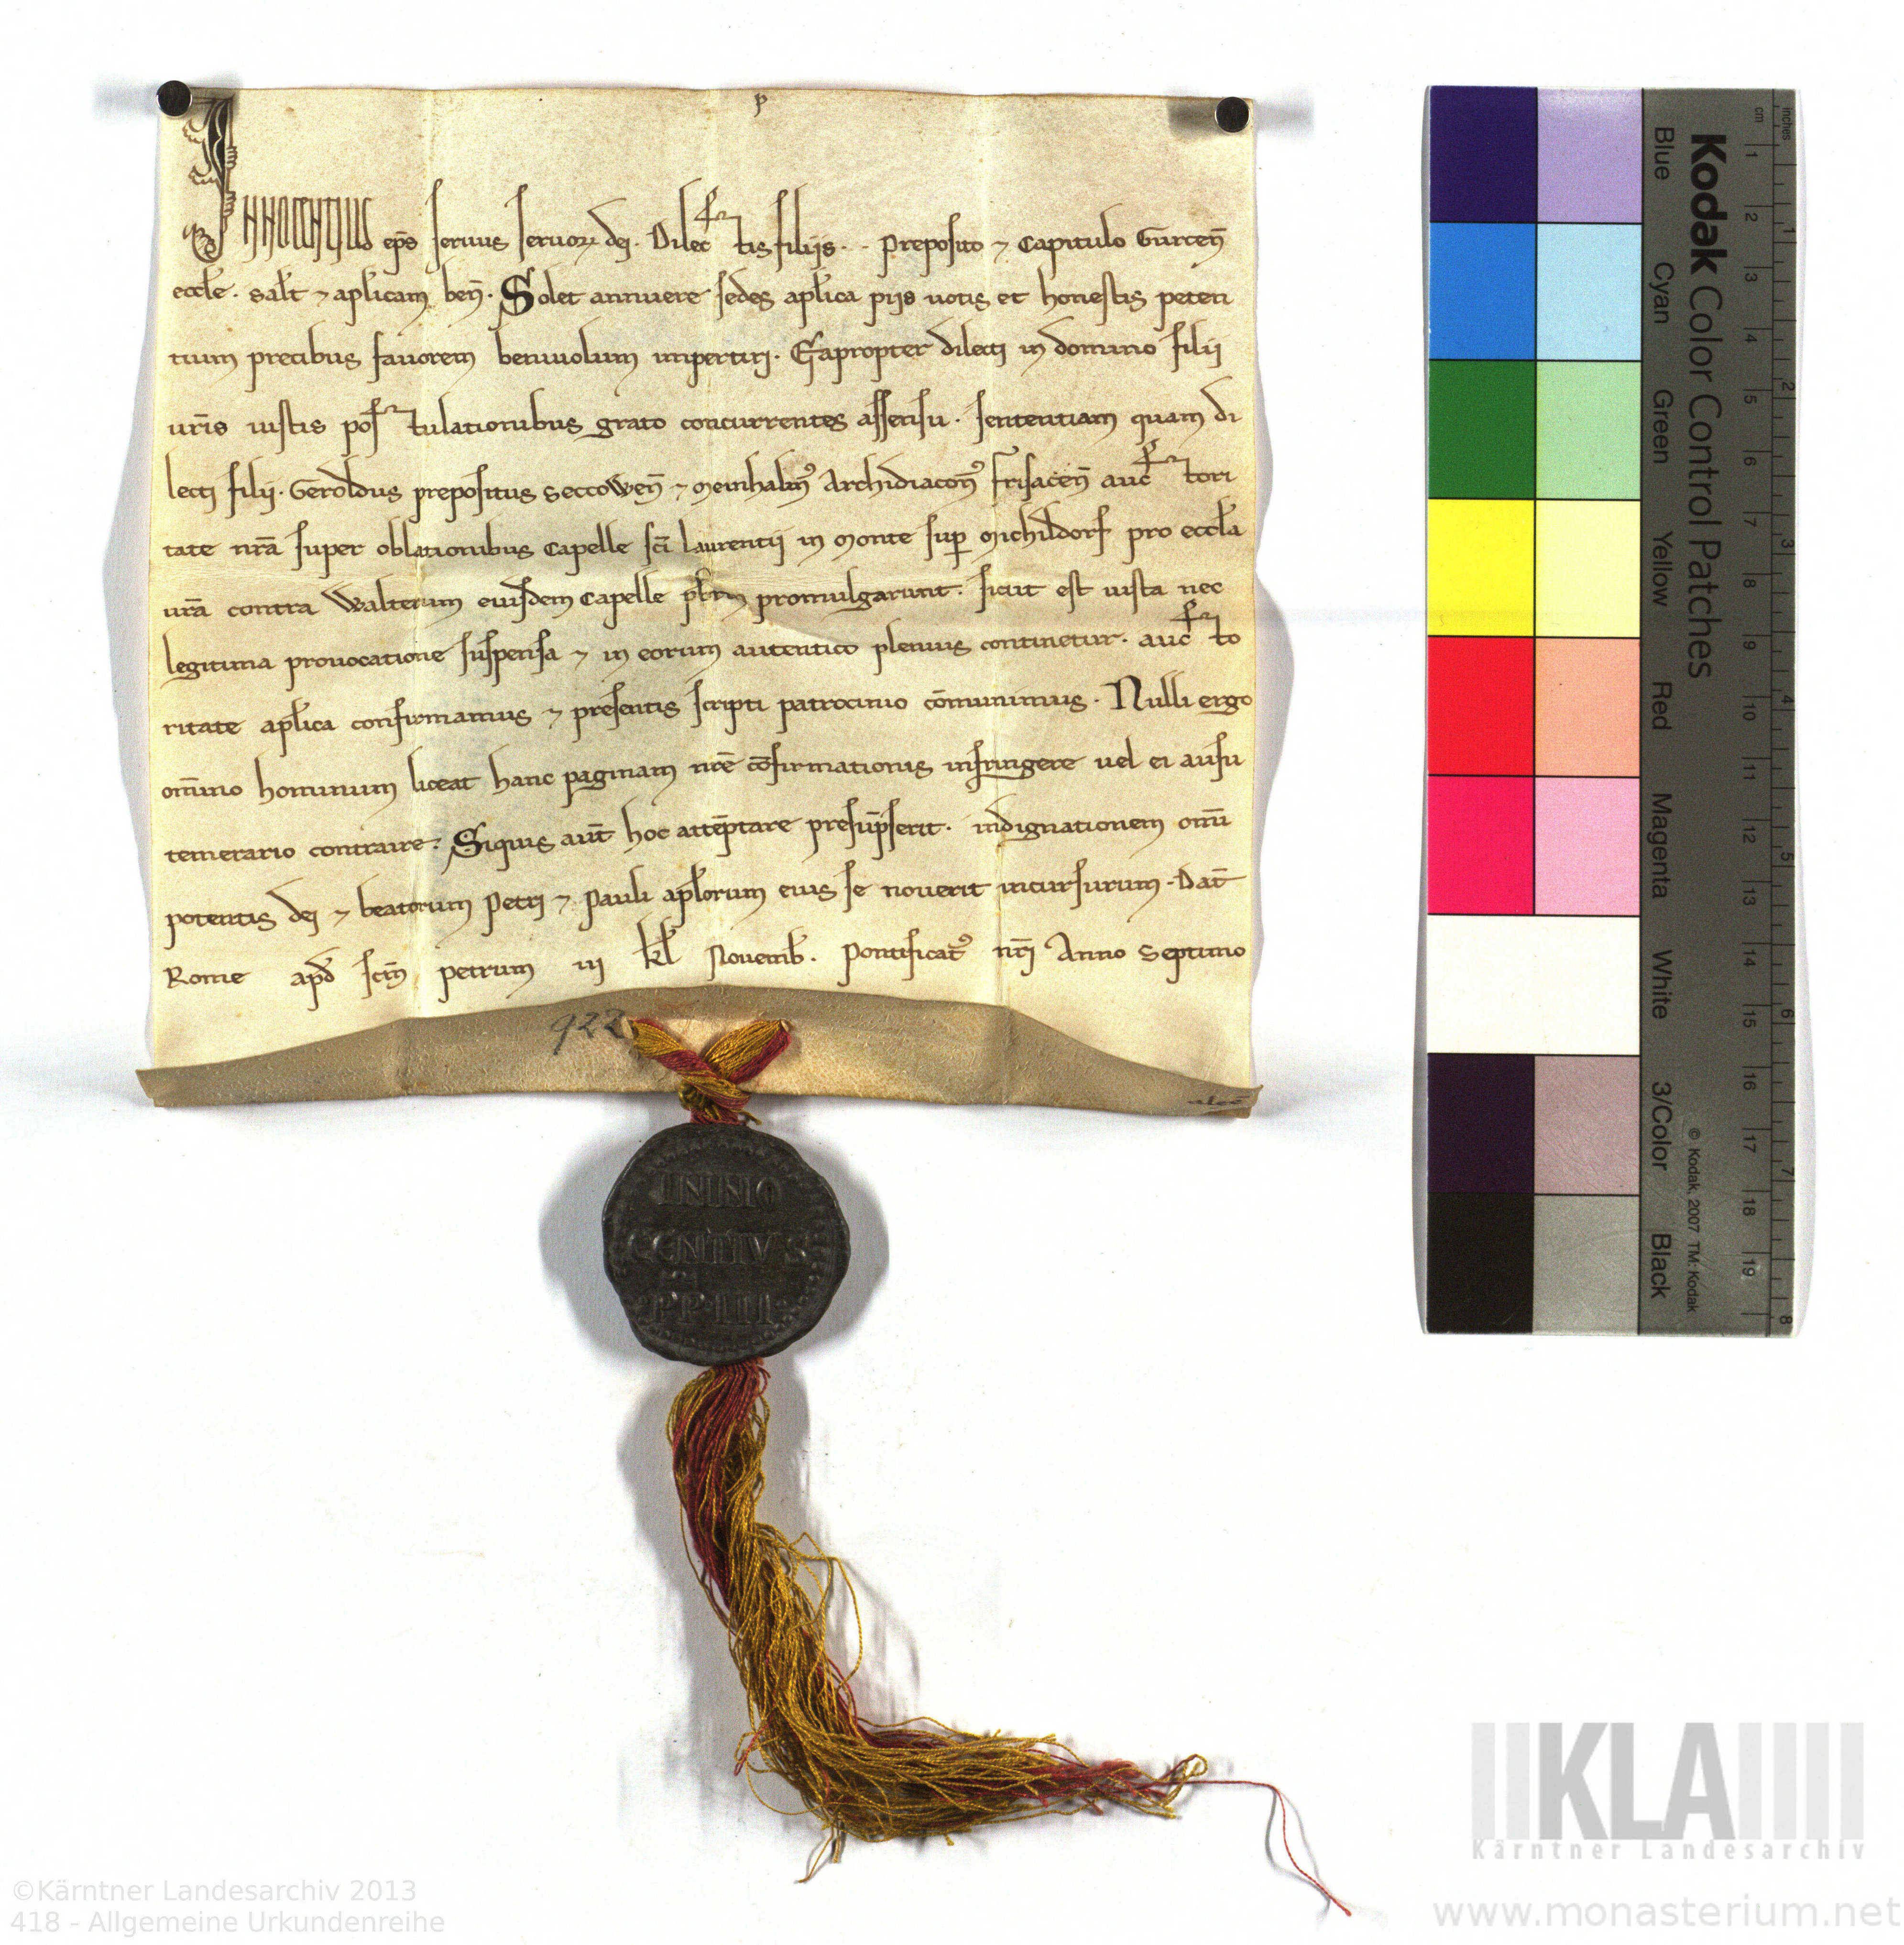 p
Innocentius ep̄s seruus seruoꝝ dei. Dilectis filiis .. Preposito ⁊ Capitulo Gurceñ
eccl̄e. sal̄t ⁊ apl̄icam beñ. Solet annuere sedes apl̄ica piis uotis et honestis peten
tium precibus fauorem beniuolum impertiri. Eapropter dilecti in domino filii
ur̄is iustis postulationibus grato concurrentes assensu. sententiam quam di
lecti filii. Geroldus prepositus Seccoweñ ⁊ Meinhalmꝰ Archidiaconꝰ Frisaceñ auctori
tate nr̄a super oblationibus Capelle sc̄i Laurentii in Monte suꝑ Michildorf pro eccl̄a
ur̄a contra Walterum eiusdem Capelle pb̄rm promulgarunt. sicut est iusta nec
legitima prouocatione suspensa ⁊ in eorum autentico plenius continetur. aucto
ritate apl̄ica confirmamus ⁊ presentis scripti patrocinio cōmunimus. Nulli ergo
om̄ino hominum liceat hanc paginam nr̄e cōfirmationis infringere uel ei ausu
temerario contraire. Siquis aut̄ hoc attēptare presūpserit. indignationem om̄i
potentis dei ⁊ beatorum Petri ⁊ Pauli apl̄orum eius se nouerit incursurum. Dat̄
Rome apd̄ scm̄ petrum iii kl̄ Nouemb̄. Pontificatꝰ nr̄i Anno Septimo
922
INNO
CENTIVS
PP·III
Kodak Color Control Patches
© Kodak, 2007 TM: Kodak
Blue Cyan Green Yellow Red Magenta White 3/Color Black
cm 1 2 3 4 5 6 7 8 9 10 11 12 13 14 15 16 17 18 19
inches 1 2 3 4 5 6 7 8
KLA
Kärntner Landesarchiv
©Kärntner Landesarchiv 2013
418 - Allgemeine Urkundenreihe
www.monasterium.net